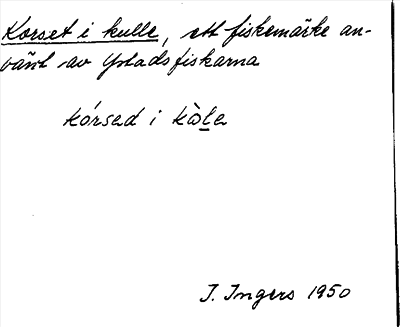 Korset i kulle, ett fiskemärke an-
vänt av Ystadsfiskarna
kórsed i kòle
I. Ingers 1950